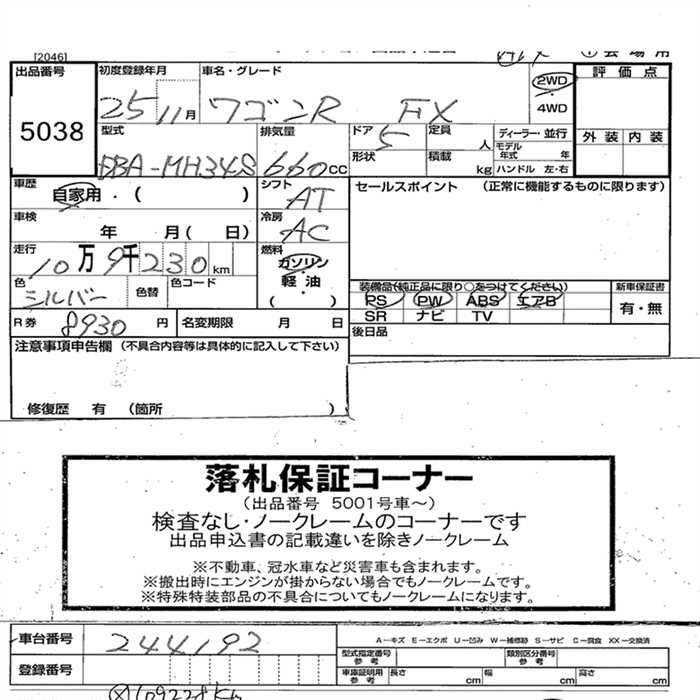 [2046]
出品番号 5038
初度登録年月 25 11月
車名・グレード ワゴンR FX
2WD
4WD
評価点
外装 内装
型式 DBA-MH34S
排気量 660cc
ドア 5
形状
定員 人
積載 kg
ディーラー・並行
モデル年式 年
ハンドル 左・右
車歴 自家用・( )
シフト AT
セールスポイント (正常に機能するものに限ります)
車検 年 月( 日)
冷房 AC
走行 10万9千230km
燃料 ガソリン
軽油
( )
色 シルバー
色替
色コード
装備品(純正品に限り○をつけてください)
PS PW ABS エアB
SR ナビ TV
新車保証書
有・無
R券 8930円
名変期限 月 日
後日品
注意事項申告欄(不具合内容等は具体的に記入して下さい)
修復歴 有 (箇所 )
落札保証コーナー
(出品番号 5001号車~)
検査なし・ノークレームのコーナーです
出品申込書の記載違いを除きノークレーム
※不動車、冠水車など災害車も含まれます。
※搬出時にエンジンが掛からない場合でもノークレームです。
※特殊特装部品の不具合についてもノークレームになります。
車台番号 244192
A-キズ E-エクボ U-凹み W-補修跡 S-サビ C-腐食 XX-交換済
登録番号
型式指定番号 参考
類別区分番号 参考
車庫証明用 参考 長さ cm 幅 cm 高さ cm
109228km